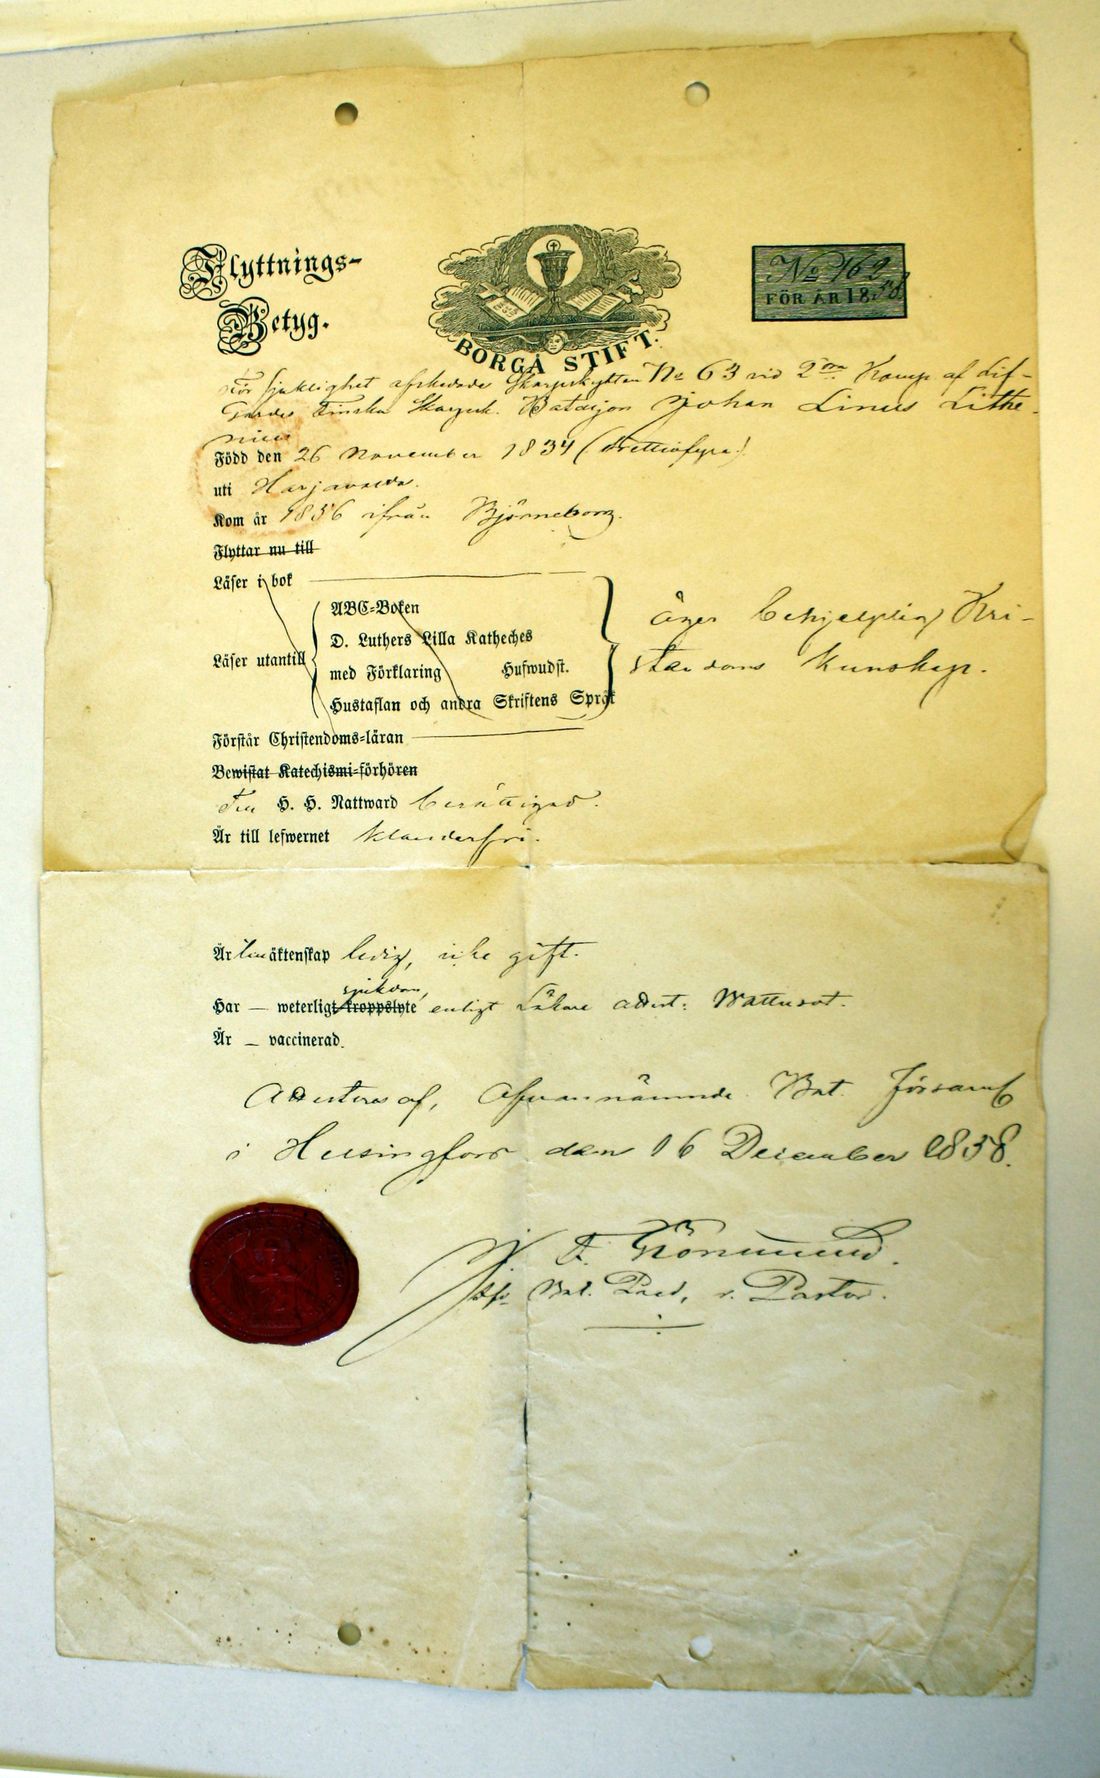 Flyttnings-
Betyg.
BORGÅ STIFT.
No 162
FÖR ÅR 1858
För sjuklighet afskedade Skarpskytten No 63 vid 2dra Komp. af Lif-
Gardes Finska Skarpsk. Bataljon Johan Linus Lithe-
nius
Född den 26 November 1834 (trettiofyra)
uti Harjavalda.
Kom år 1856 ifrån Björneborg.
Flyttar nu till
Läser i bok
ABC-Boken
D. Luthers Lilla Katheches
Läser utantill
med Förklaring Hufwudst.
Hustaflan och andra Skriftens Språk
äger behjelplig Kri-
stendoms kunskap.
Förstår Christendoms-läran
Bewistat Katechismi-förhören
Till H. H. Nattward berättigad.
Är till lefwernet klanderfri.
Är till äktenskap ledig, icke gift.
sjukdom,
Har — weterligt kroppslyte enligt Läkare attest: Wattusot.
Är — vaccinerad.
Attesteras af, Ofvannämnde Bat. Församl
i Helsingfors den 16 December 1858.
F.
Bat. Pred, v. Pastor.